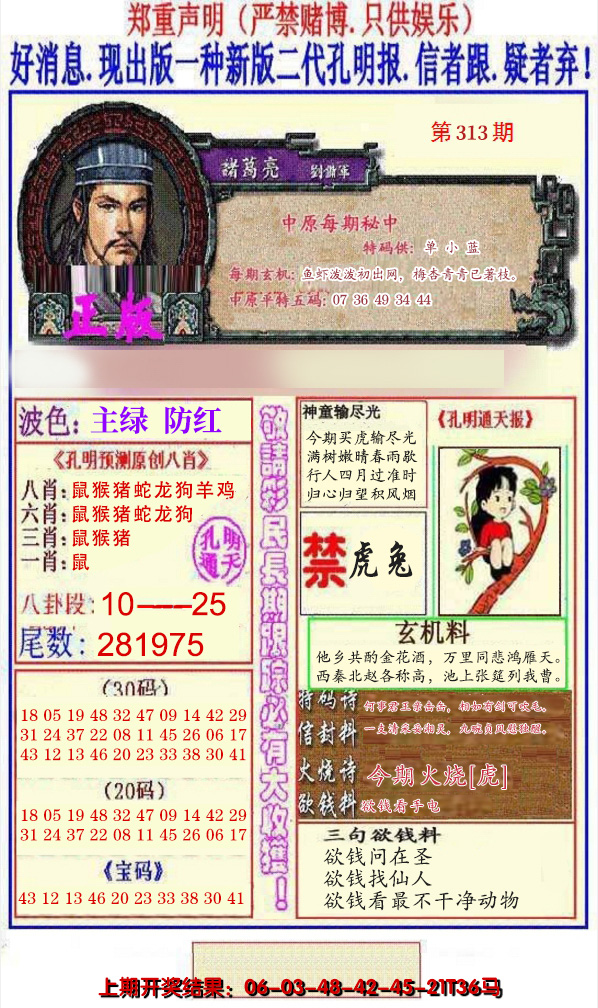 郑重声明（严禁赌博.只供娱乐）
好消息.现出版一种新版二代孔明报.信者跟.疑者弃!
第313期
諸葛亮 劉備軍
中原每期秘中
特码供: 单 小 蓝
每期玄机: 鱼虾泼泼初出网，梅杏青青已著枝。
中原平特五码: 07 36 49 34 44
正版
波色: 主绿 防红
《孔明预测原创八肖》
八肖:鼠猴猪蛇龙狗羊鸡
六肖:鼠猴猪蛇龙狗
三肖:鼠猴猪
一肖:鼠
孔明
通天
八卦段:10-----25
尾数:281975
(30码)
18 05 19 48 32 47 09 14 42 29
31 24 37 22 08 11 45 26 06 17
43 12 13 46 20 23 33 38 30 41
(20码)
18 05 19 48 32 47 09 14 42 29
31 24 37 22 08 11 45 26 06 17
《宝码》
43 12 13 46 20 23 33 38 30 41
敬請彩民長期跟踪必有大收獲!
神童输尽光
今期买虎输尽光
满树嫩晴春雨歇
行人四月过准时
归心归望积风烟
《孔明通天报》
禁 虎兔
玄机料
他乡共酌金花酒，万里同悲鸿雁天。
西秦北赵各称高，池上张筵列我曹。
特码诗
信封料
火烧诗 今期火烧[虎]
欲钱料 欲钱看手电
三句欲钱料
欲钱问在圣
欲钱找仙人
欲钱看最不干净动物
上期开奖结果：06-03-48-42-45-21T36马